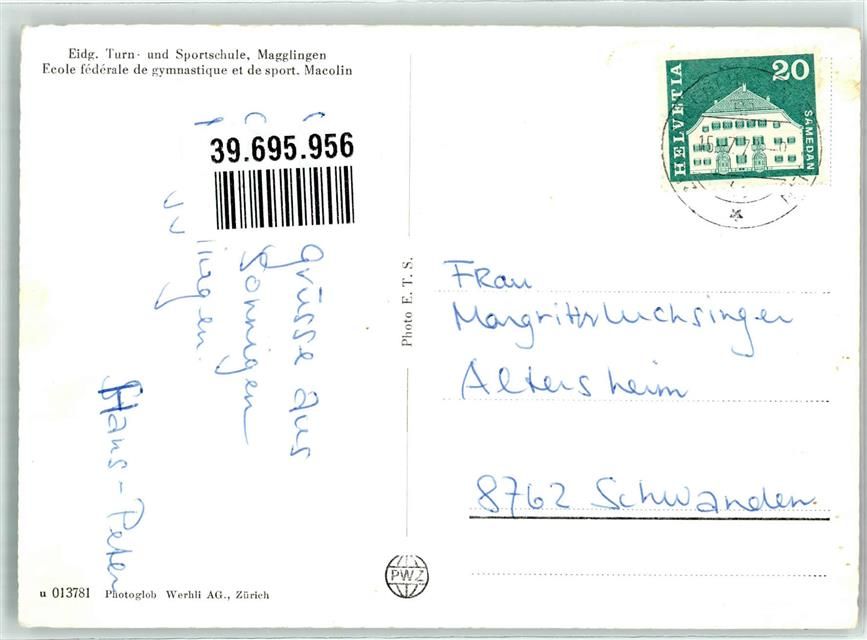 Eidg. Turn- und Sportschule, Magglingen
Ecole fédérale de gymnastique et de sport. Macolin
39.695.956
grüsse aus
Sonnigen
lingen
Hans-Peter
u 013781 Photoglob Wehrli AG., Zürich
Photo E. T. S.
PWZ
HELVETIA
20
SAMEDAN
Frau
Margrith Luchsinger
Altersheim
8762 Schwanden